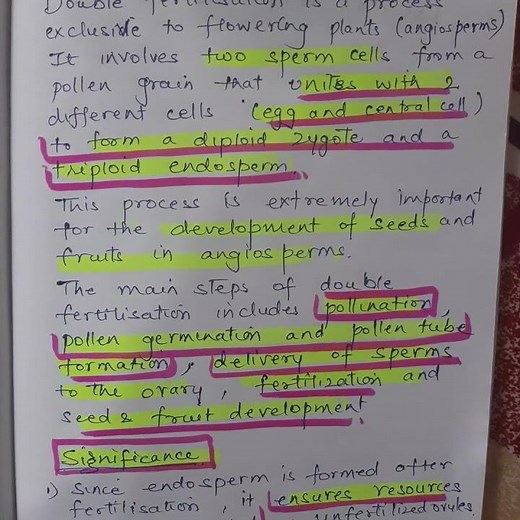 Double fertilisation is a process
exclusive to flowering plants (angiosperms)
It involves two sperm cells from a
pollen grain that unites with 2
different cells (egg and central cell)
to form a diploid zygote and a
triploid endosperm.
This process is extremely important
for the development of seeds and
fruits in angiosperms.
The main steps of double
fertilisation includes pollination,
pollen germination and pollen tube
formation, delivery of sperms
to the ovary, fertilization and
seed & fruit development
Significance
1) Since endosperm is formed after
fertilisation, it ensures resources
unfertilized ovules